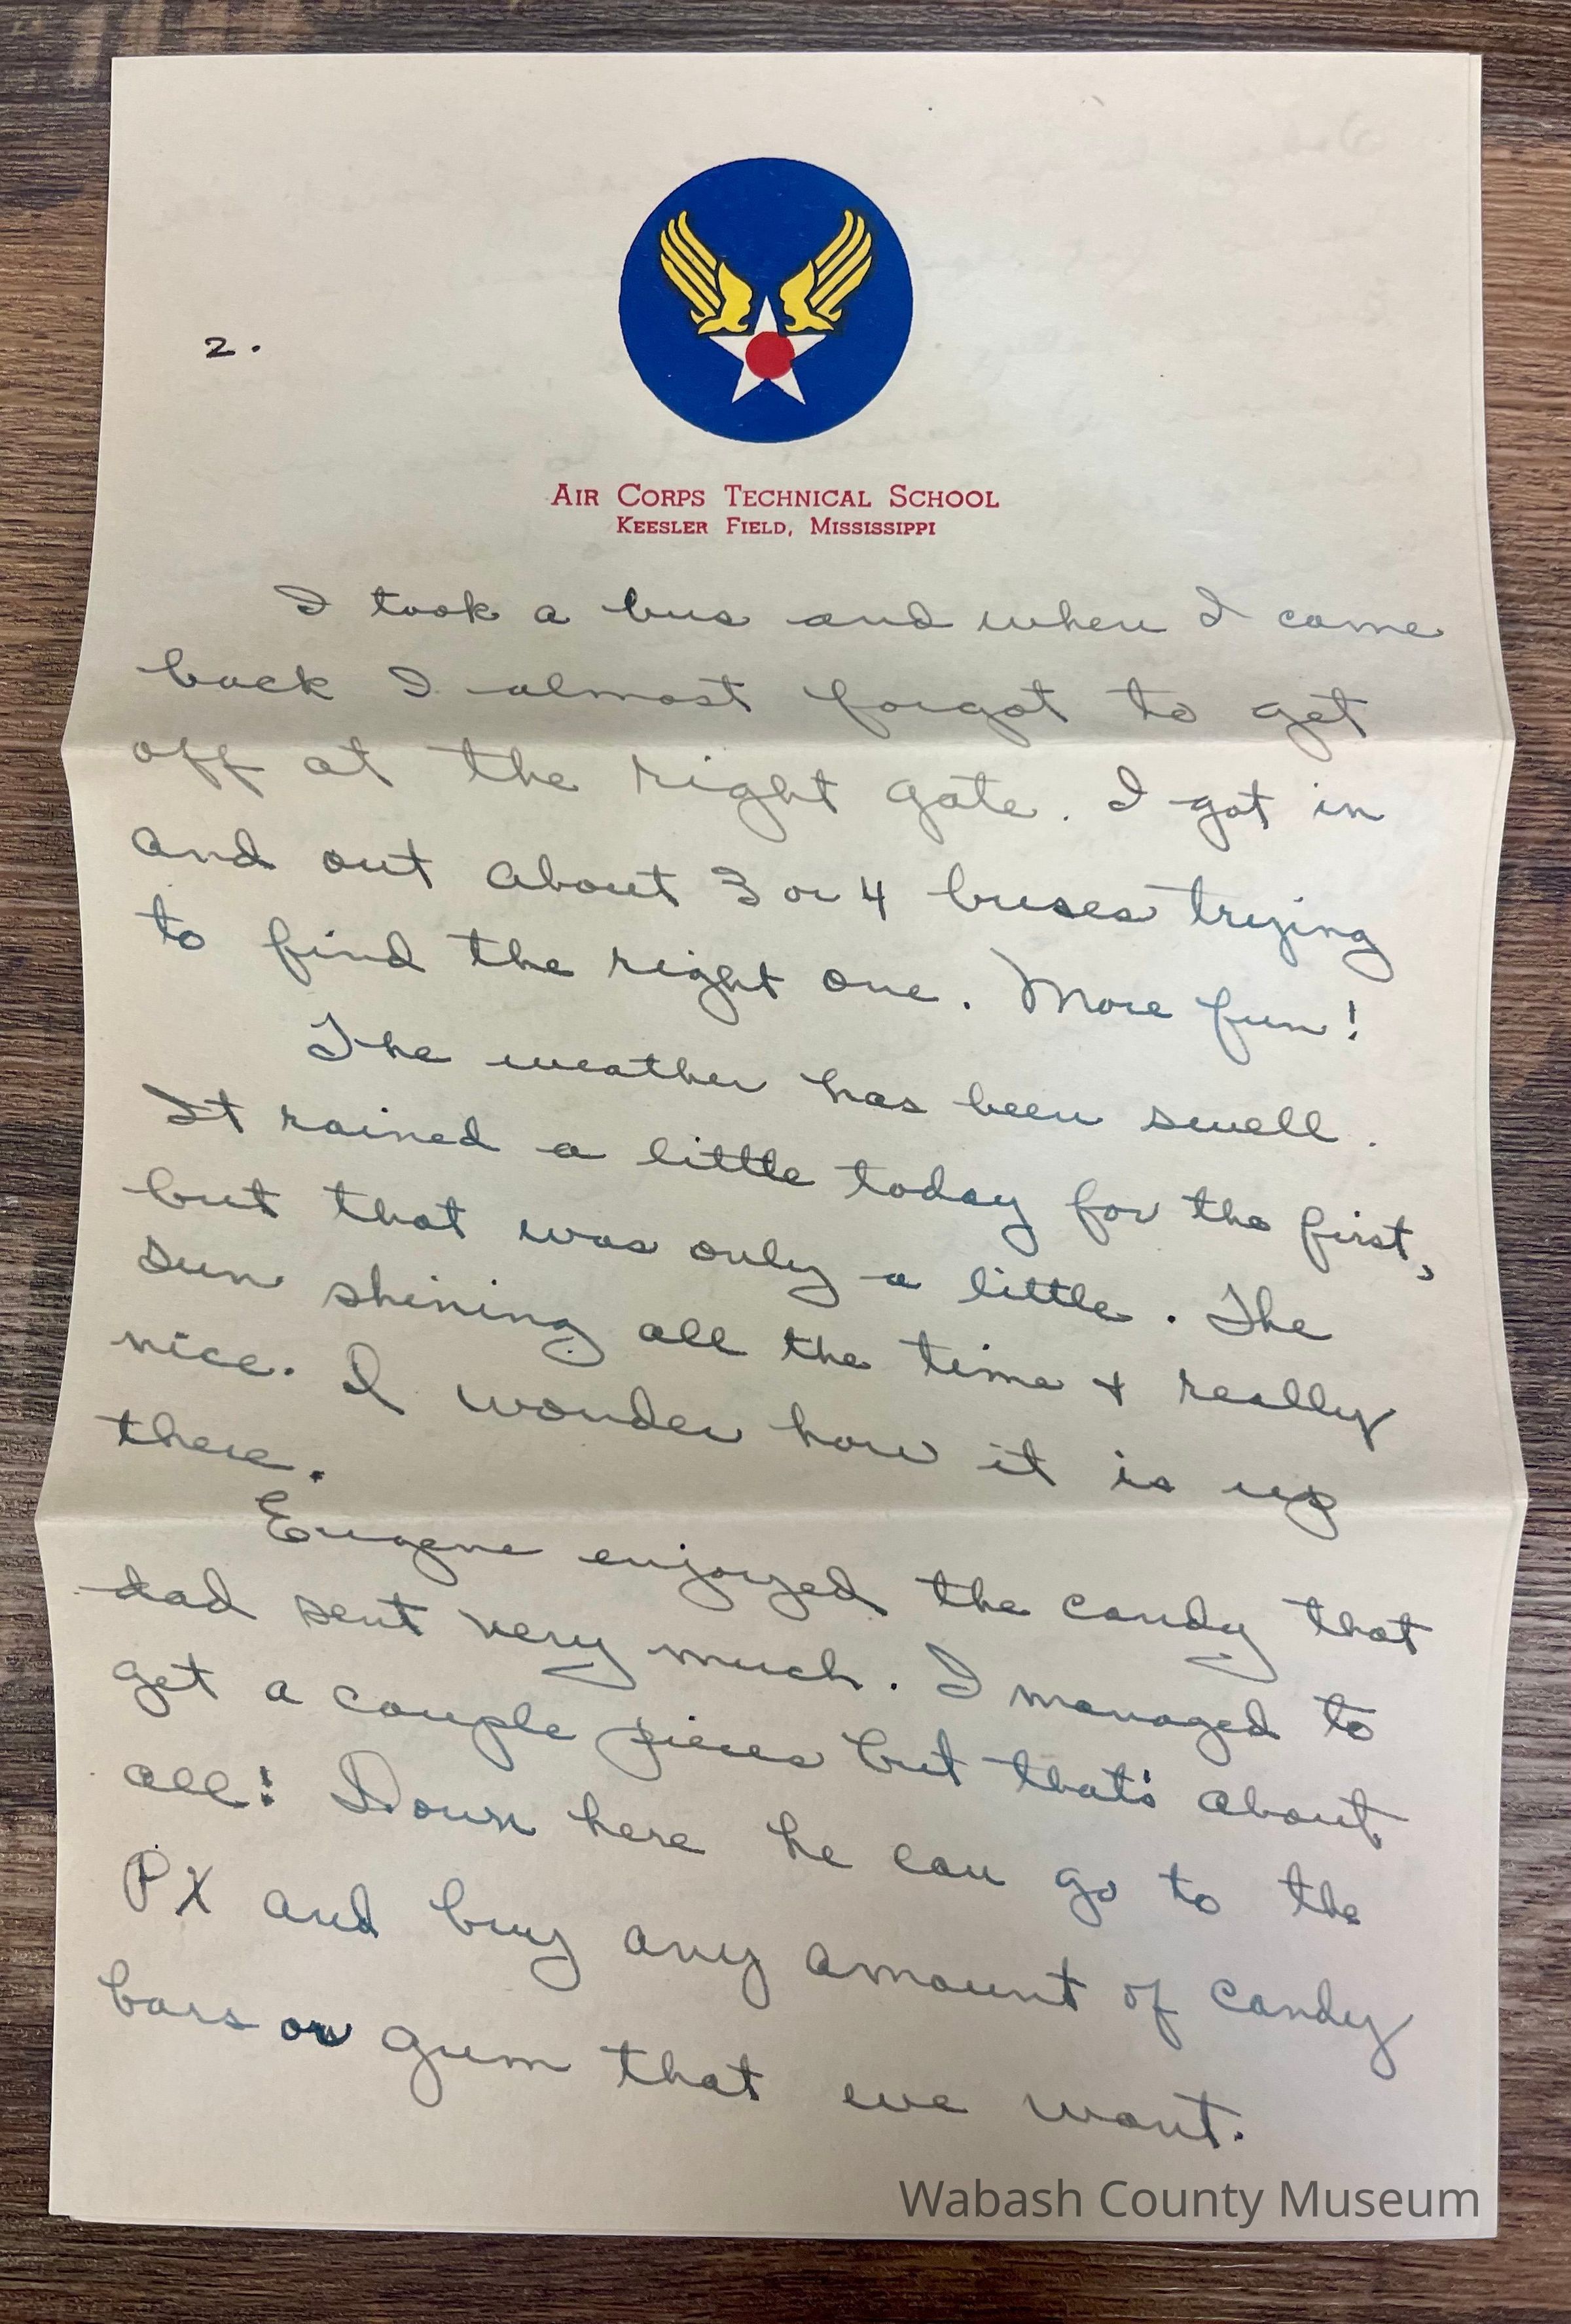 2.
AIR CORPS TECHNICAL SCHOOL
KEESLER FIELD, MISSISSIPPI
I took a bus and when I came
back I almost forgot to get
off at the right gate. I got in
and out about 3 or 4 buses trying
to find the right one. More fun!
The weather has been swell.
It rained a little today for the first,
but that was only a little. The
sun shining all the time + really
nice. I wonder how it is up
there.
Eugene enjoyed the candy that
dad sent very much. I managed to
get a couple pieces but that's about
all! Down here he can go to the
PX and buy any amount of candy
bars or gum that we want.
Wabash County Museum